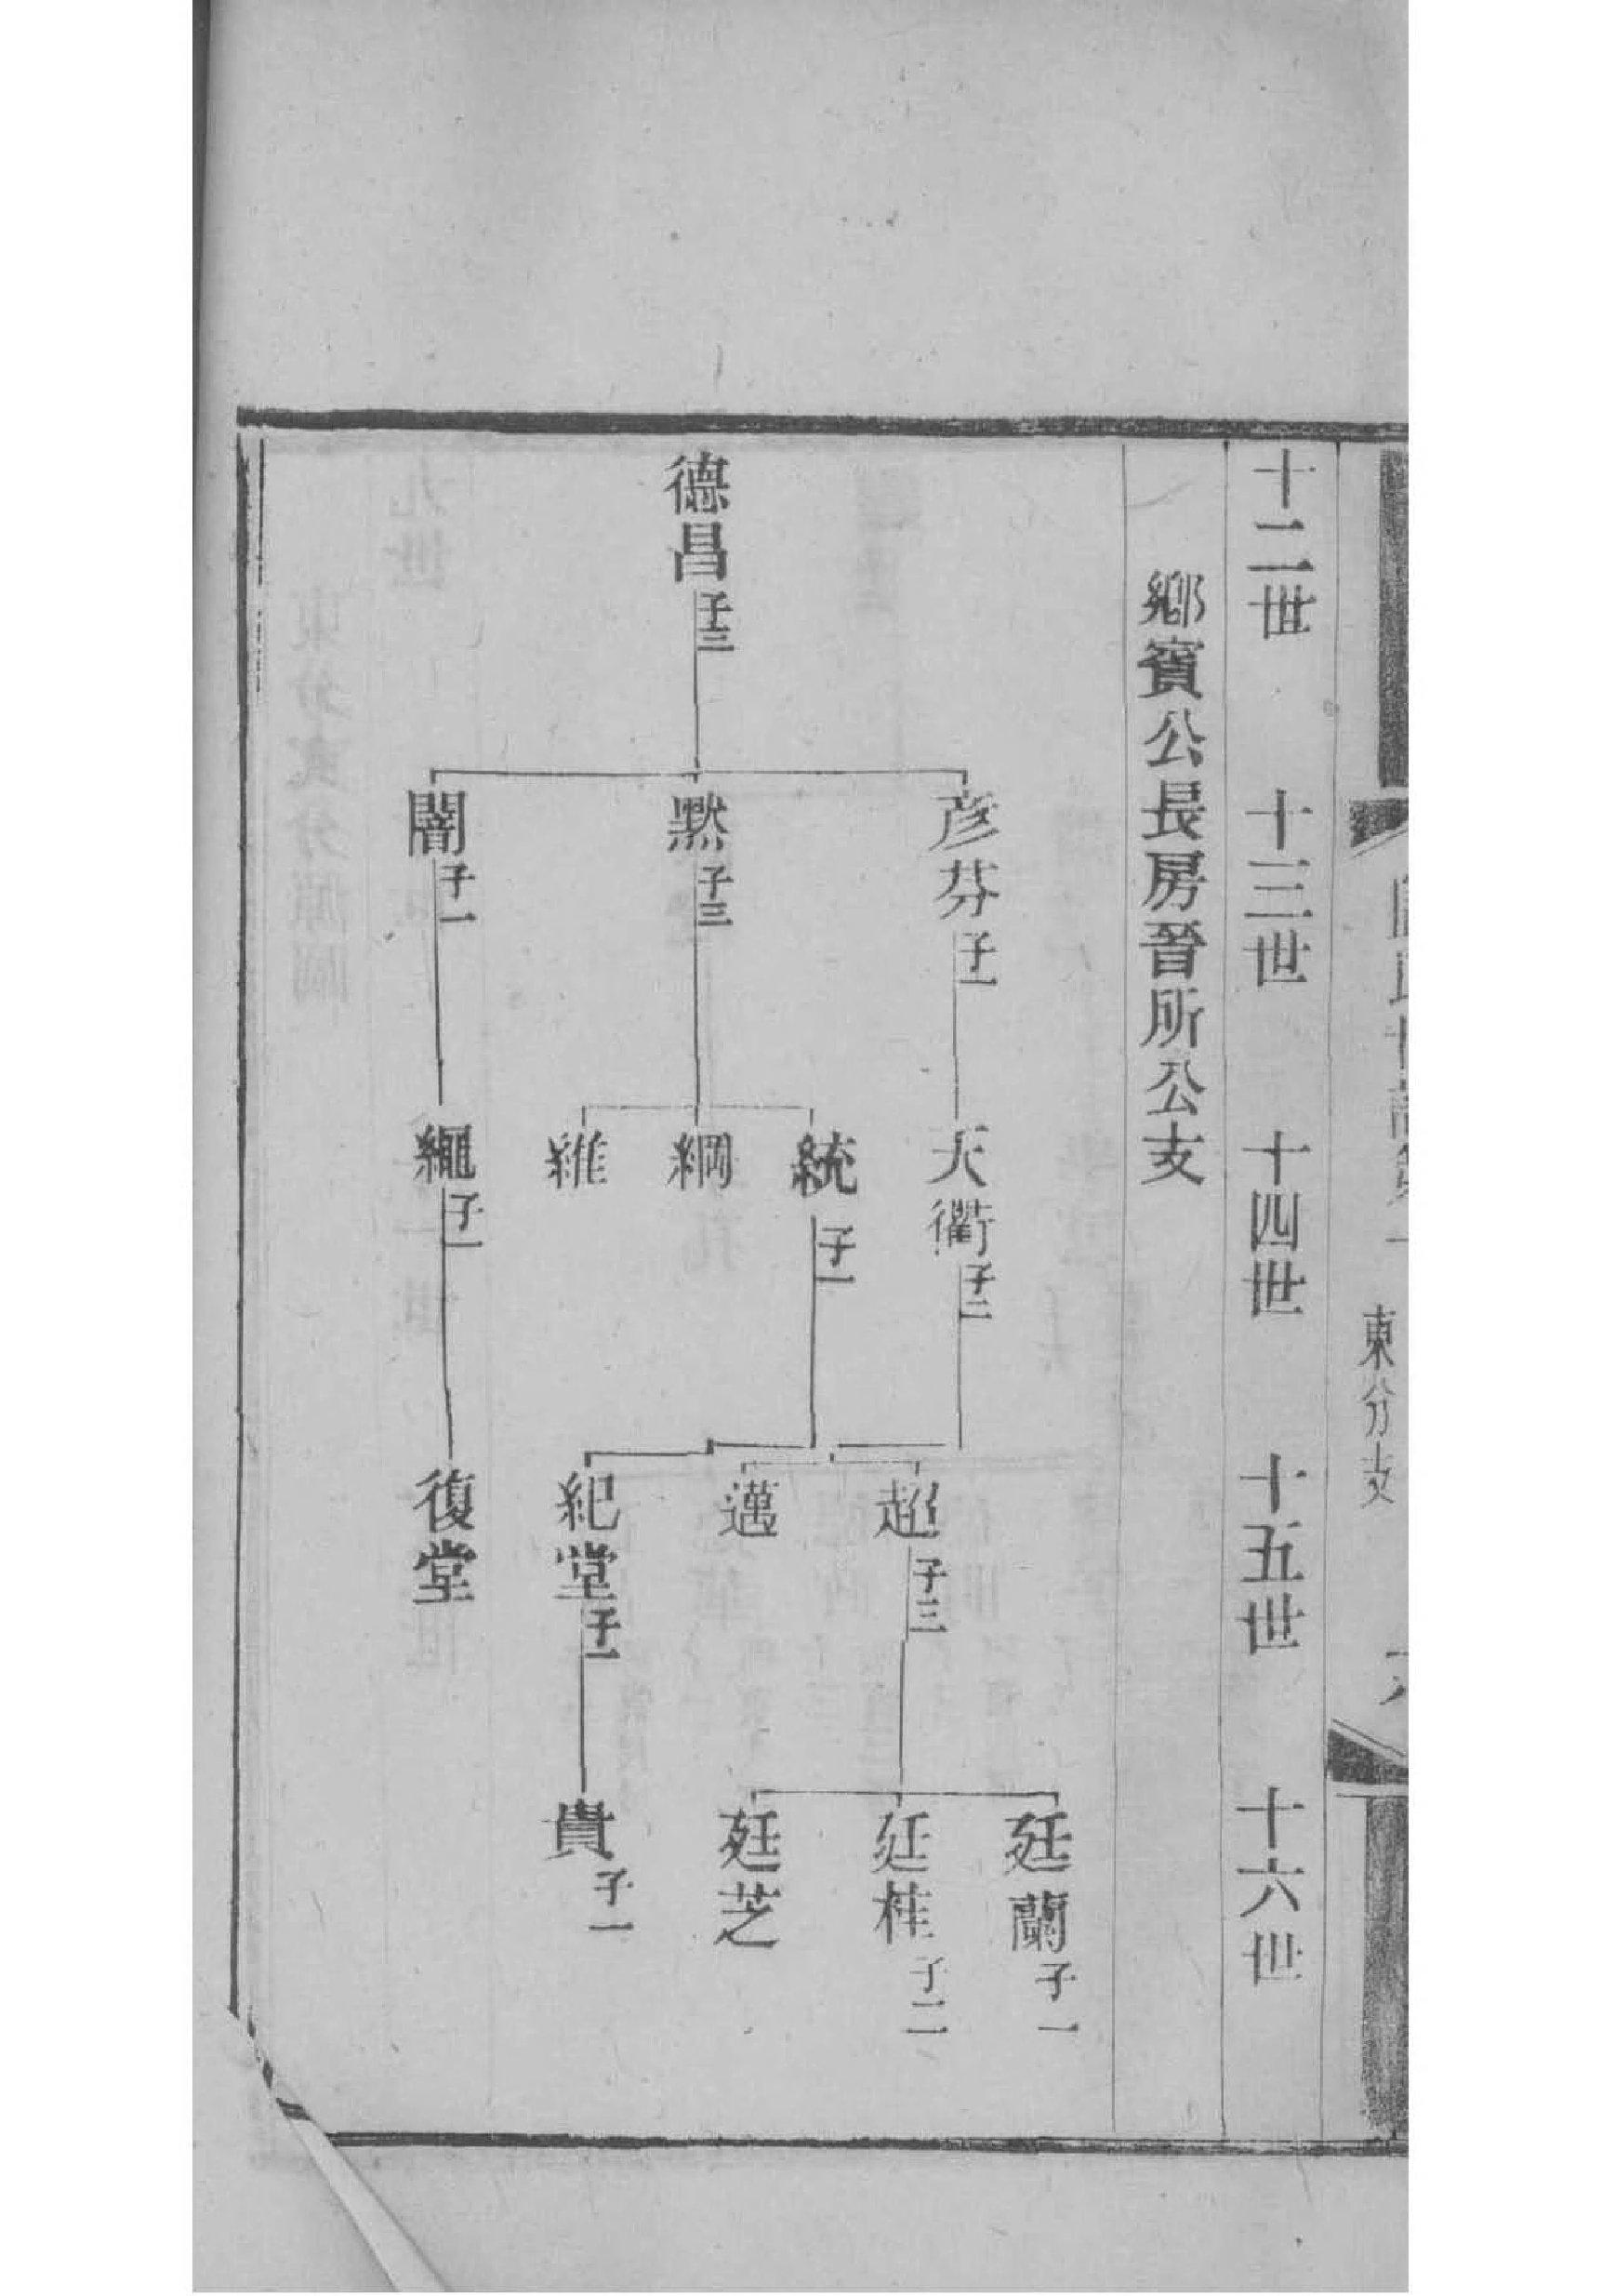 東分支
十二世 十三世 十四世 十五世 十六世
鄉賓公長房晉所公支
德昌 子三
彥芬 子一
黙 子三
闇 子一
天衢 子二
統 子一
綱
維
繩 子一
超 子三
邁
紀堂 子一
復堂
廷蘭 子一
廷桂 子二
廷芝
貴 子一